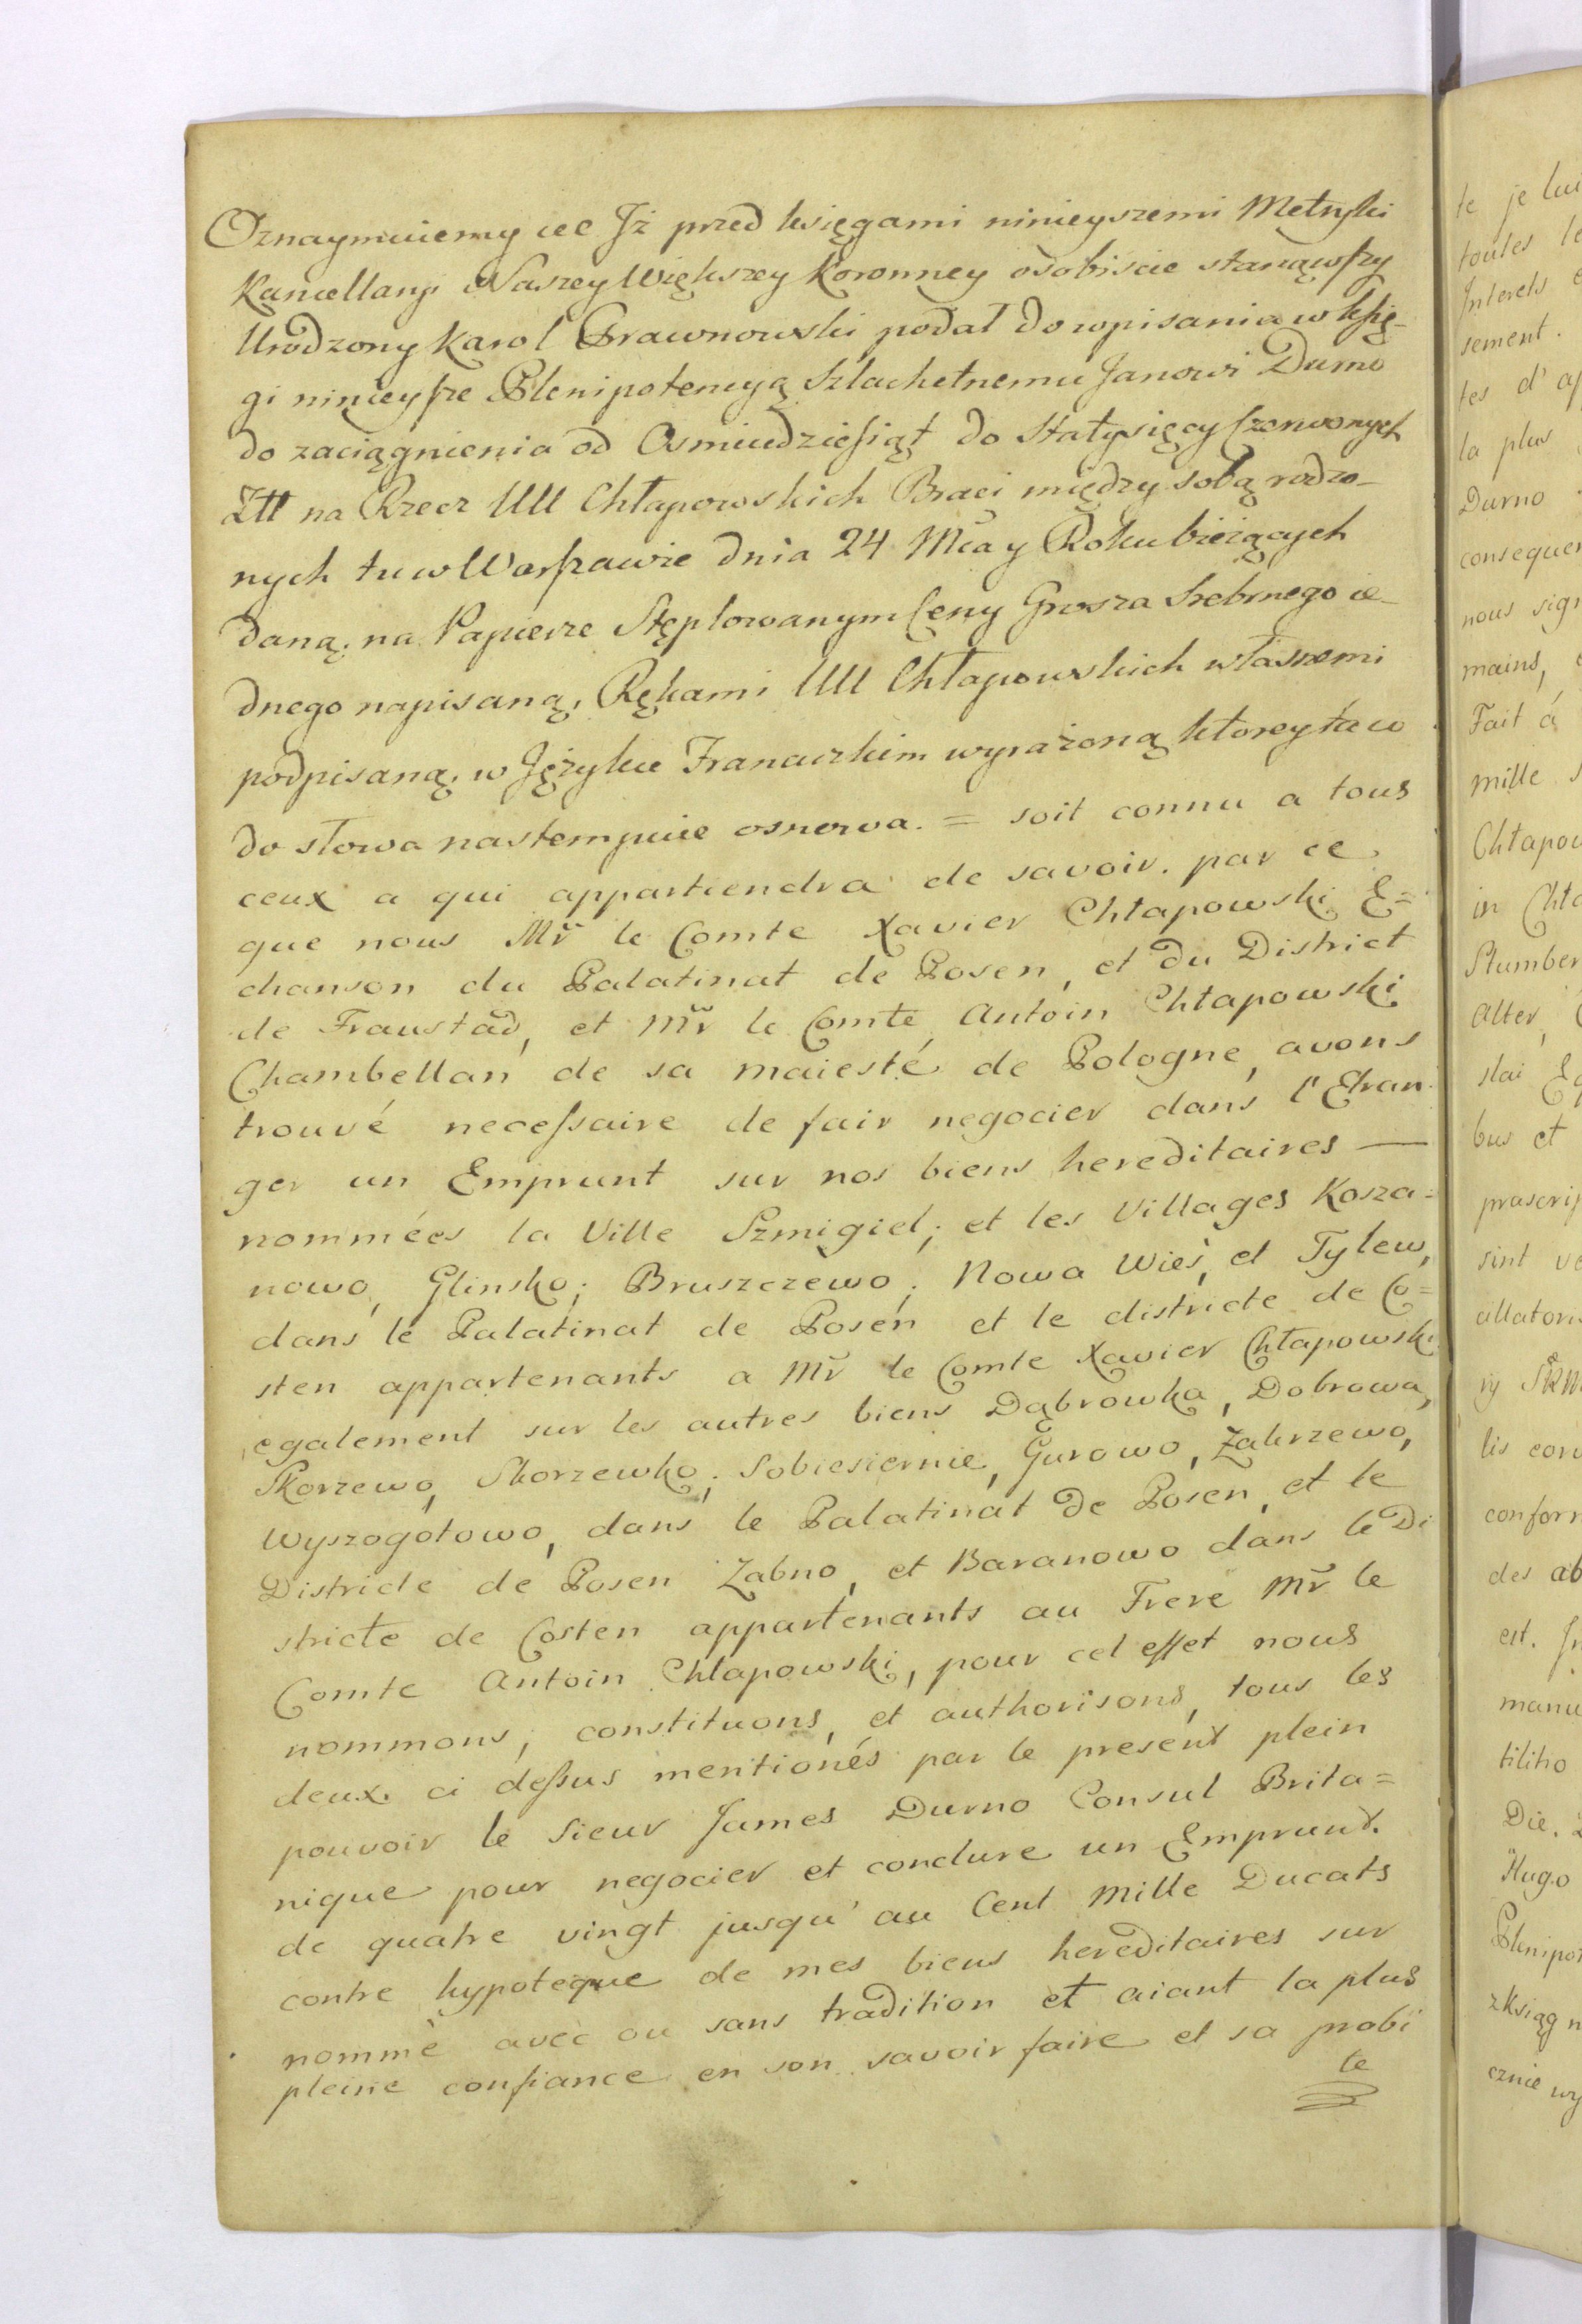 Oznaymuiemy etc Jż przed księgami ninieyszemi Metryki
Kancellaryi Naszey Większey Koronney osobiscie stanąwszy
Urodzony Karol Prawnowski podał do wpisania w księ-
gi ninieysze Plenipotencyą Szlachetnemu Janowi Durno
do zaciągnienia od Osmiudziesiąt do Statysięcy Czerwonych
Ztt na Rzecz UU Chłapowskich Braci między sobą rodzo-
nych tu w Warszawie dnia 24 Mca y Roku bieiących
daną. na Papierze Stęplowanym Ceny Grosza Srebrnego ie-
dnego napisaną, Rękami UU Chłapowskich własnemi
podpisaną, w Języku Francuzkim wyrażoną ktorey słowo
do słowa nastempuie osnowa. = soit connu a tous
ceux a qui appartiendra de savoir. par ce
que nous Mr le Comte Xavier Chłapowski E=
chanson du Palatinat de Posen, et du District
de Fraustad, et Mr le Comte Antoin Chłapowski
Chambellan de sa maiesté de Pologne, avons
trouvé necessaire de fair negocier dans l'Etran
ger un Emprunt sur nos biens hereditaires —
nommées la Ville Szmigiel; et les Villages Kosza=
nowo, Glinsko; Bruszczewo; Nowa Wies, et Tylew,
dans le Palatinat de Posen et le districte de Co=
sten appartenants a Mr le Comte Xavier Chłapowski
egalement sur les autres biens Dąbrowka, Dobrowa,
Skorzewo, Skorzewko; Sobiesiernie, Gurowo, Zakrzewo,
Wyszogotowo, dans le Palatinat de Posen, et le
Districte de Posen Zabno, et Baranowo dans le Di
stricte de Costen appartenants au Frere Mr le
Comte Antoin Chlapowski, pour cet effet nous
nommons, constituons, et authorisons, tous les
deux ci dessus mentionés par le present plein
pouvoir le Sieur James Durno Consul Brita=
nique pour negocier et conclure un Emprunt
de quatre vingt jusqu'au Cent Mille Ducats
contre hypoteque de mes biens hereditaires sur
nommè avec ou sans tradition et aiant la plus
pleine confiance en son savoir faire et sa probi
te
te je lui
toutes le
Interets
sement.
tes d'
la plus
Durno
nous sig
mains,
Fait á
mille
in
Alter,
bus et
sint
lis
des ab
est.
manu
Die.
Hugo